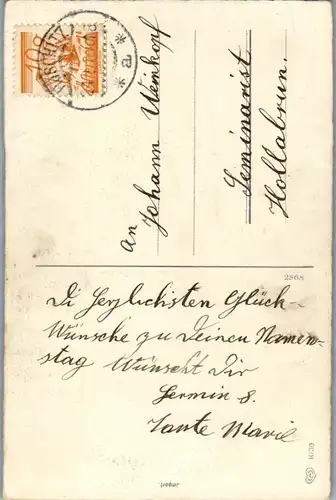 An
Johann Weinkopf
Seminarist
Hollabrun.
2868
Di herzlichsten Glück-
Wünsche zu Deinen Namens-
stag Wünscht Dir
Hermin &
Tante Marie